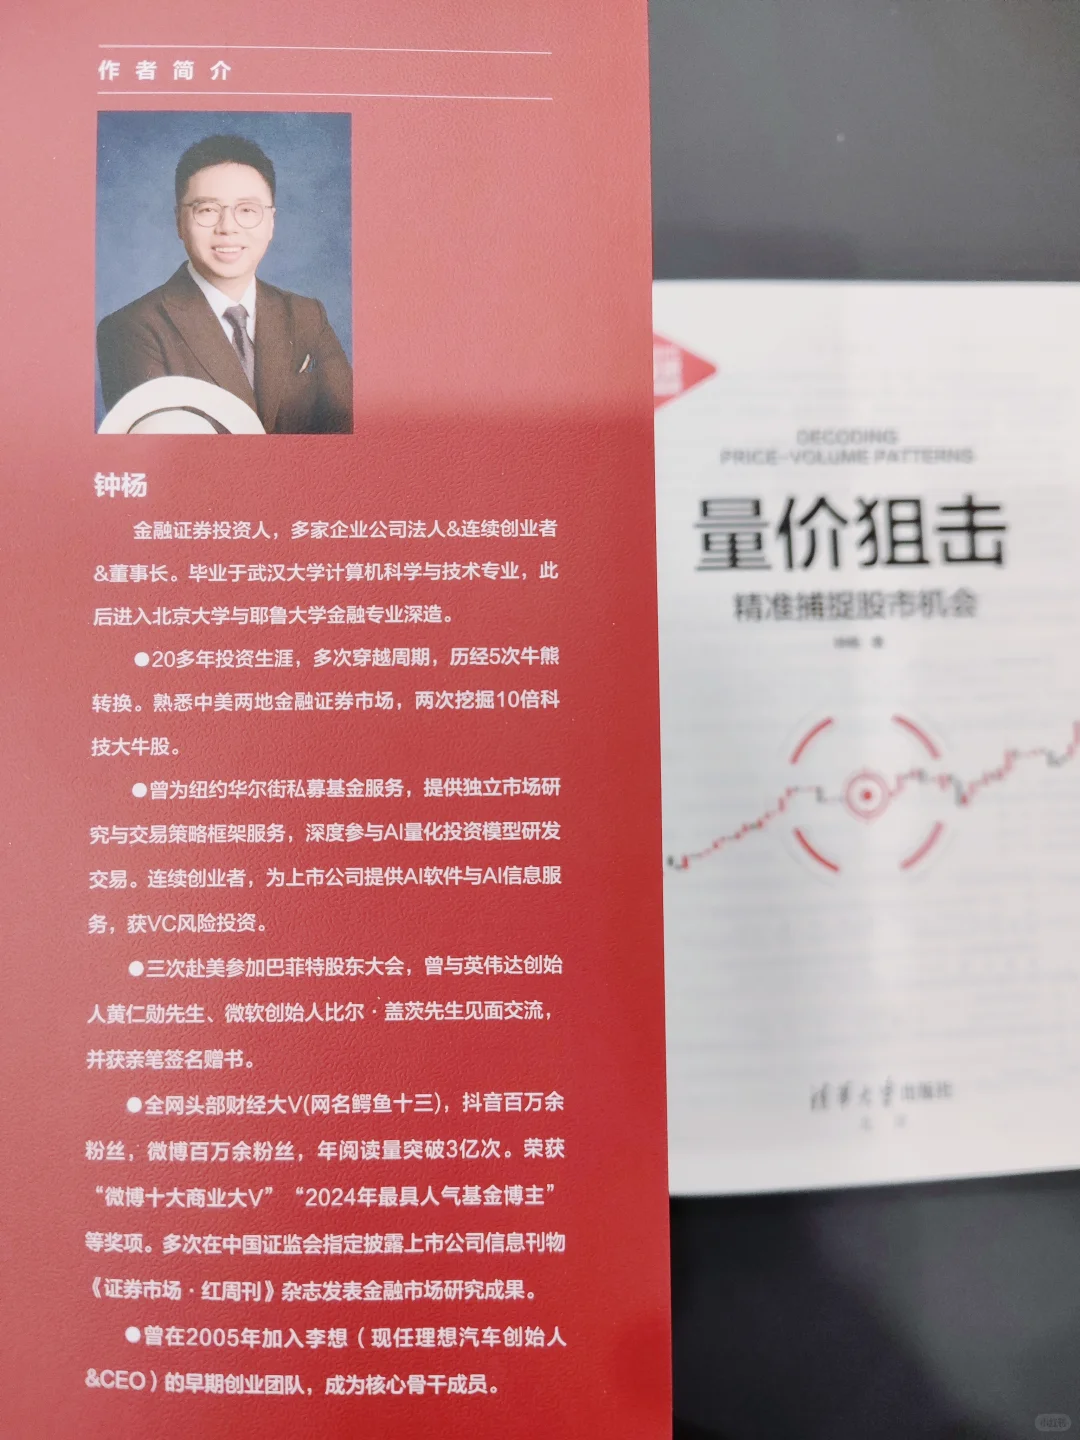 作者简介
钟杨
金融证券投资人，多家企业公司法人&连续创业者
&董事长。毕业于武汉大学计算机科学与技术专业，此
后进入北京大学与耶鲁大学金融专业深造。
●20多年投资生涯，多次穿越周期，历经5次牛熊
转换。熟悉中美两地金融证券市场，两次挖掘10倍科
技大牛股。
●曾为纽约华尔街私募基金服务，提供独立市场研
究与交易策略框架服务，深度参与AI量化投资模型研发
交易。连续创业者，为上市公司提供AI软件与AI信息服
务，获VC风险投资。
●三次赴美参加巴菲特股东大会，曾与英伟达创始
人黄仁勋先生、微软创始人比尔·盖茨先生见面交流，
并获亲笔签名赠书。
●全网头部财经大V(网名鳄鱼十三)，抖音百万余
粉丝，微博百万余粉丝，年阅读量突破3亿次。荣获
“微博十大商业大V”“2024年最具人气基金博主”
等奖项。多次在中国证监会指定披露上市公司信息刊物
《证券市场·红周刊》杂志发表金融市场研究成果。
●曾在2005年加入李想（现任理想汽车创始人
&CEO）的早期创业团队，成为核心骨干成员。
DECODING
PRICE-VOLUME PATTERNS
量价狙击
精准捕捉股市机会
清华大学出版社
小红书